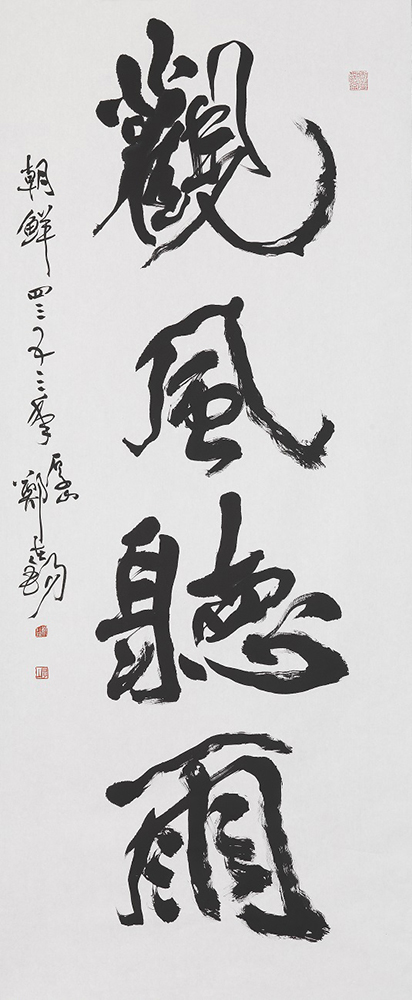 觀風聽雨
朝鮮四三五三年 山 鄭